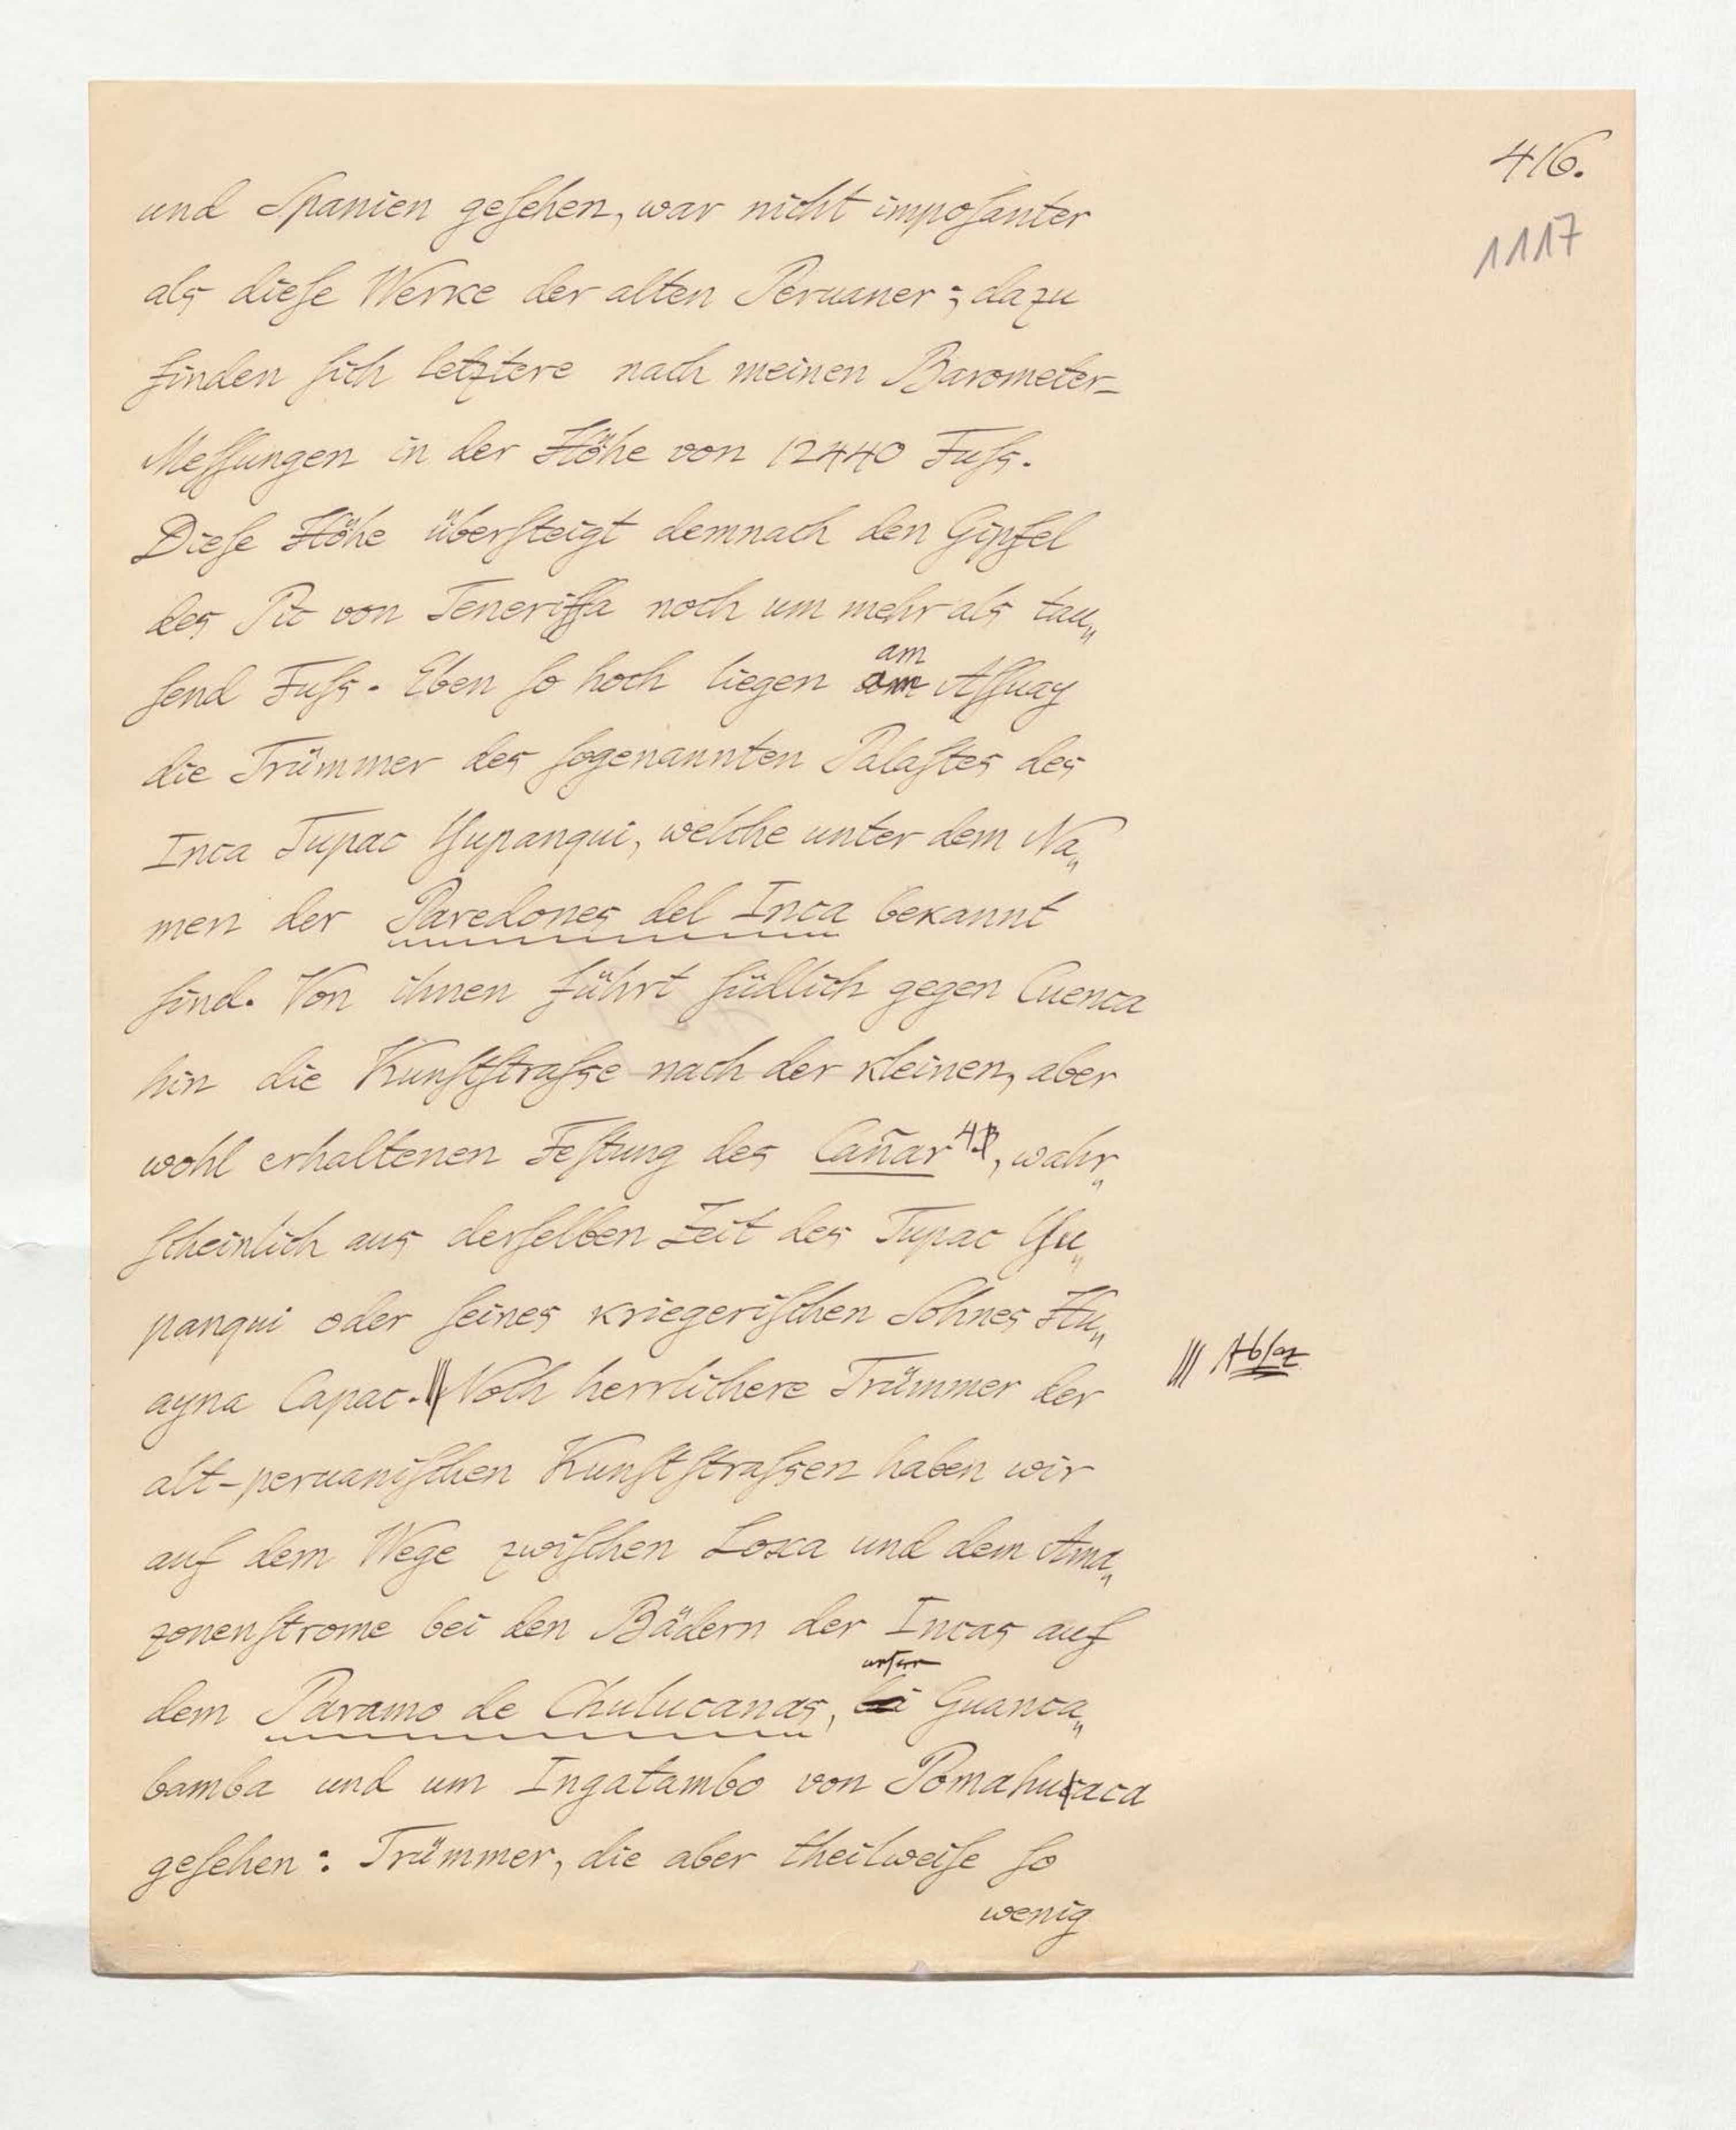 416.
1117
und Spanien geſehen, war nicht impoſanter
als dieſe Werke der alten Peruaner; dazu
finden ſich letztere nach meinen Barometer-
Meſſungen in der Höhe von 12440 Fuſs.
Dieſe Höhe überſteigt demnach den Gipfel
des Pic von Teneriffa noch um mehr als tau„
am
ſend Fuſs. Eben ſo hoch liegen am Aſſuay
die Trümmer des ſogenannten Palaſtes des
Inca Tupac Yupanqui, welche unter dem Na„
men der Paredones del Inca bekannt
ſind. Von ihnen führt ſüdlich gegen Cuenca
hin die Kunſtſtraſse nach der kleinen, aber
wohl erhaltenen Feſtung des Cañar, wahr„
ſcheinlich aus derſelben Zeit des Tupac Yu„
panqui oder ſeines kriegeriſchen Sohnes Hu„
ayna Capac. Noch herrlichere Trümmer der
||| Absaz
alt-peruaniſchen Kunſtſtraſsen haben wir
auf dem Wege zwiſchen Loxa und dem Ama„
zonenſtrome bei den Bädern der Incas auf
unfern
dem Paramo de Chulucanas, bei Guanca„
bamba und um Ingatambo von Pomahuaca
geſehen: Trümmer, die aber theilweiſe ſo
wenig